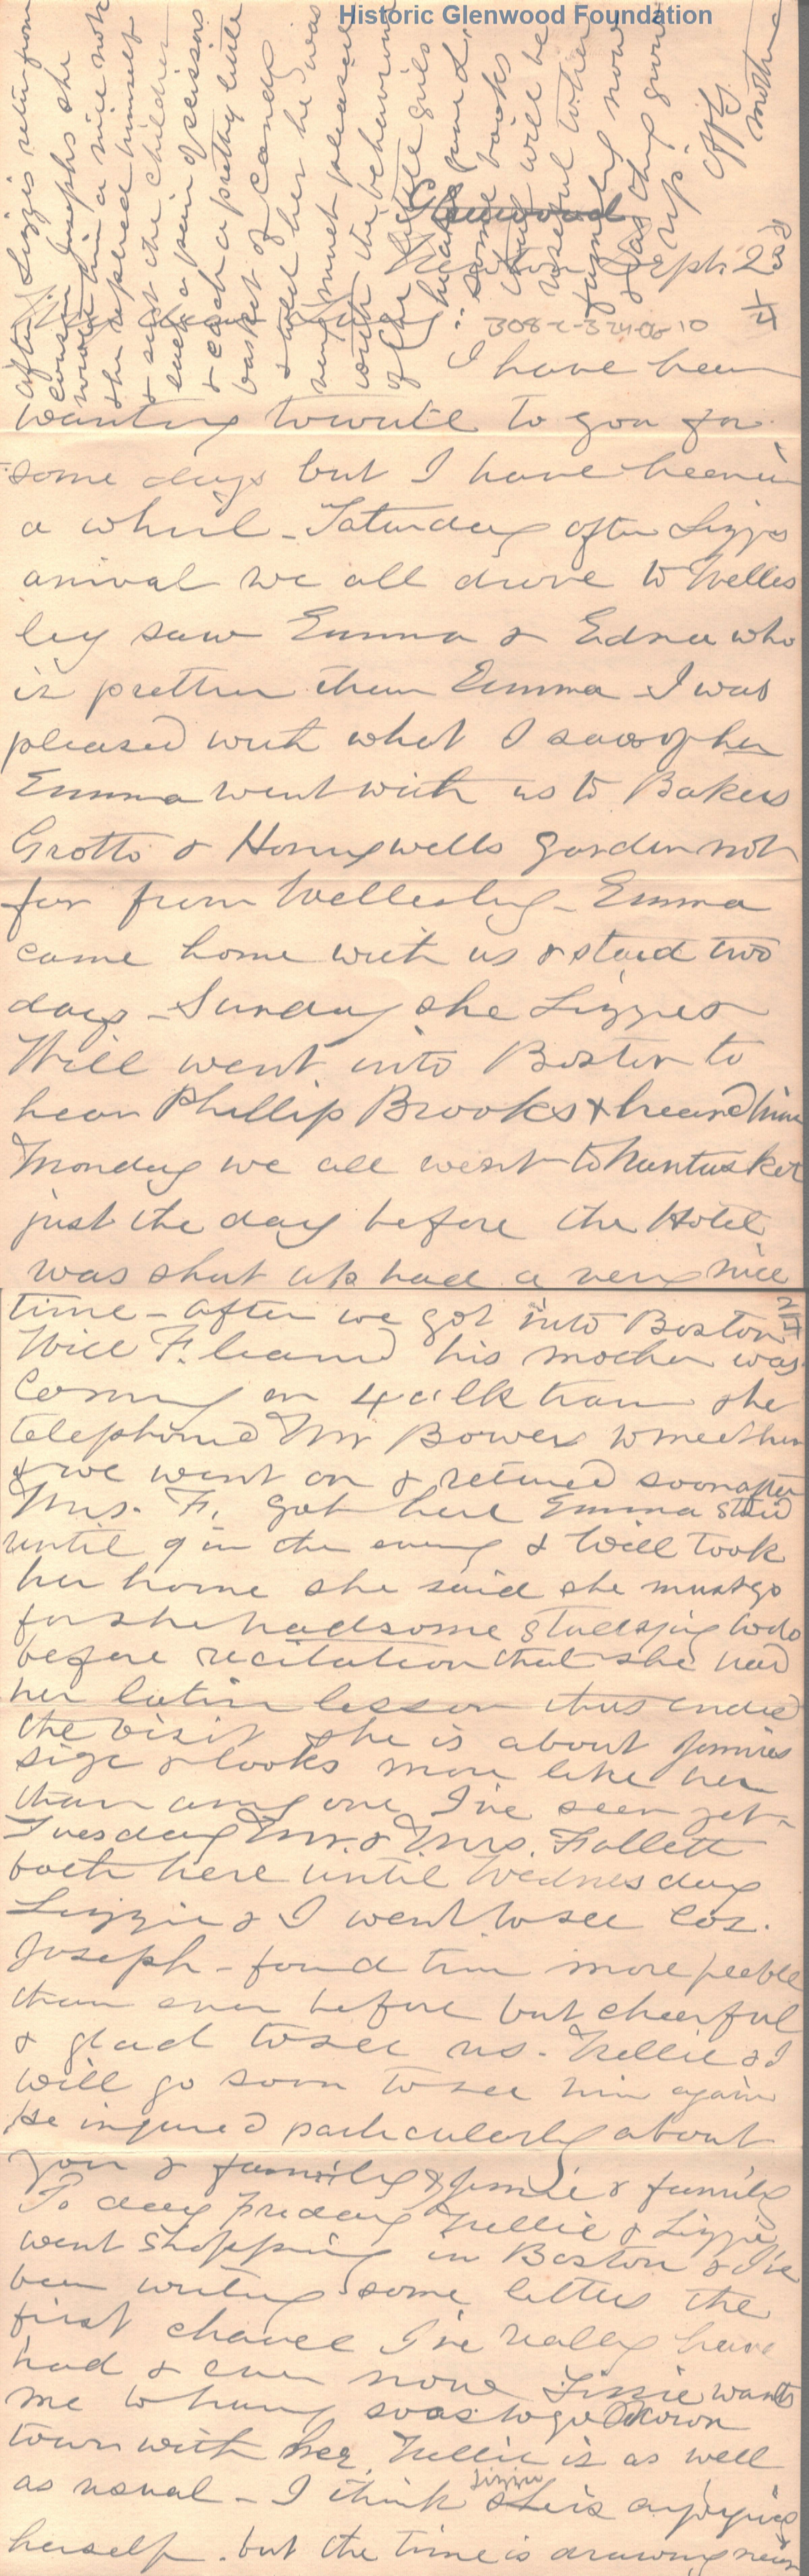 Historic Glenwood Foundation
Glenwood
Newton Sept 23d
My dear
308-2-3 24-06-10
I have been
wanting to write to you for
some days but I have been in
a whirl - Saturday after Lizzies
arrival we all drove to Welles
ley saw Emma & Edna who
is prettier than Emma I was
pleased with what I saw of her
Emma went with us to Bakers
Grotto & Honeywells garden not
far from Wellesley - Emma
came home with us & staid two
days - Sunday she Lizzie &
Will went into Boston to
hear Phillip Brooks & heard him
Monday we all went to Nantasket
just the day before the Hotel
was shut up had a very nice
time - after we got into Boston
Will F. learned his mother was
coming on 4 o clk train she
telephoned Mr Bowers to meet her
& we went on & retured soon after
Mrs. F. got here Emma staid
until 9 in the evening & Will took
her home she said she must go
for she had some studying to do
before recitation that she had
her latin lesson thus ended
the visit she is about Jennies
size & looks more like her
than any one I've seen yet -
Tuesday Mr. & Mrs. Follett
both here until Wednesday
Lizzie & I went to see Cos.
Joseph - found him more feeble
than ever before but cheerful
& glad to see us. Nellie & I
will go soon to see him again
He inquired particularly about
you & family & Jennie & family
To day Friday Nellie & Lizzie
went shopping in Boston & I've
been writing some letters the
first chance I've really have
had & even now Lizzie wants
me to hurry so as to go down
town with her. Nellie is as well
as usual - I think Lizzie she is enjoying
herself. but the time is drawing near
after Lizzies return from
cousin Josephs she
wrote him a nice note
& he replied himself
& sent the children
each a pair of scissors
& each a pretty little
basket of candy
& told her he was
very much pleased
with the behaviour
of the little girls
some books
that will be
useful to her
now
& as they grow
up
Affly
Mother